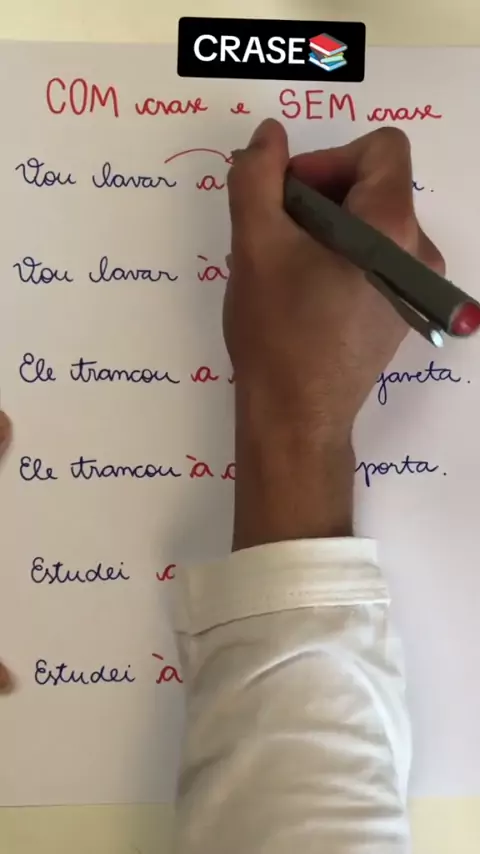 CRASE📚
COM crase e SEM crase
Vou lavar a
Vou lavar à
Ele trancou a gaveta.
Ele trancou à porta.
Estudei a
Estudei à